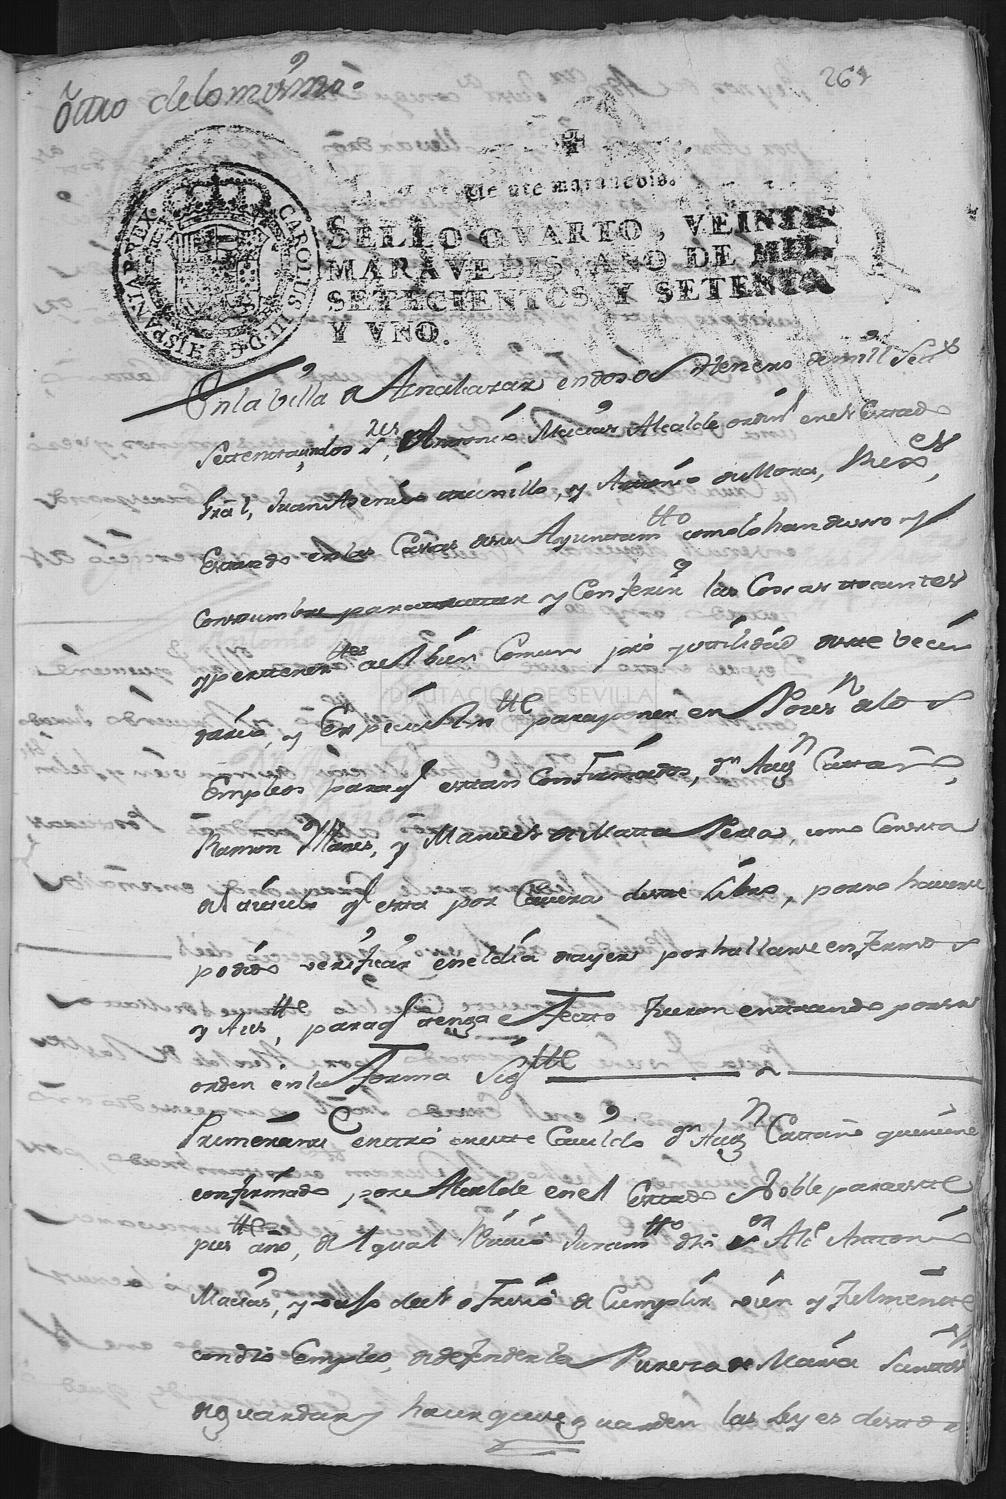 Otro delo mismo
261
Veinte maravedis.
SELLO QVARTO, VEINTE
MARAVEDIS, AÑO DE MIL
SETECIENTOS Y SETENTA
Y VNO.
CAROLUS III D G HISPANIAR REX
En la Villa de Aznalcazar en dos de Henero de mill Settos
Settenta y dos ss.res Antonio Macias Alcalde ordin.o en el Estado
Gral, Juan Asencio Trujillo, y Antonio de Mora, Rex.es,
Estando en las Casas de su Ayuntam.tto como lo han de uso y
costumbre para tratar y Conferir las Cosas tocantes
y pertenez.ttes al bien Comun pro y utilidad deste vecin
dario, y Especialm.tte para poner en Poses.n de los
Empleos para q estan Confirmados, d.n Aug.n Cattaño,
Ramon Yllanes, y Manuel de Matta Perea, como Consta
del auto q esta por Cavera deste Libro, por no haverse
podido verificar en el dia de ayer por hallarse enfermo
para q tenga efecto fueron entrando por su
orden en la forma Sig.tte
Primeramte entró en este Cavildo d.n Aug.n Cattaño que viene
confirmado por Alcalde en el Estado Noble para este
pres.tte año, del qual Recivió Juram.tto dho s.or Al.e Antoni
Macias, y vaxo de el ofreció de Cumplir vien y fielmente
con dho Empleo, defender la Pureza de Maria Santis
de guardar y hacer que se guarden las Leyes deste
DIPUTACIÓN DE SEVILLA